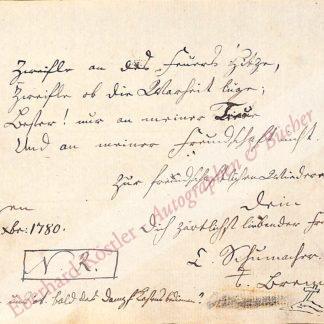 Zweifle an des Feuers Hitze,
Zweifle ob die Warheit lüge;
Bester! nur an meiner Treue
Und an meiner Freundschaft nicht.
Zur freundschaftlichen Wiedere
en
xbr: 1780.
Dein
Dich zärtlichst liebender Fr
C. Schumacher.
N. R.
bald des
Eberhard Köstler Autographen & Bücher